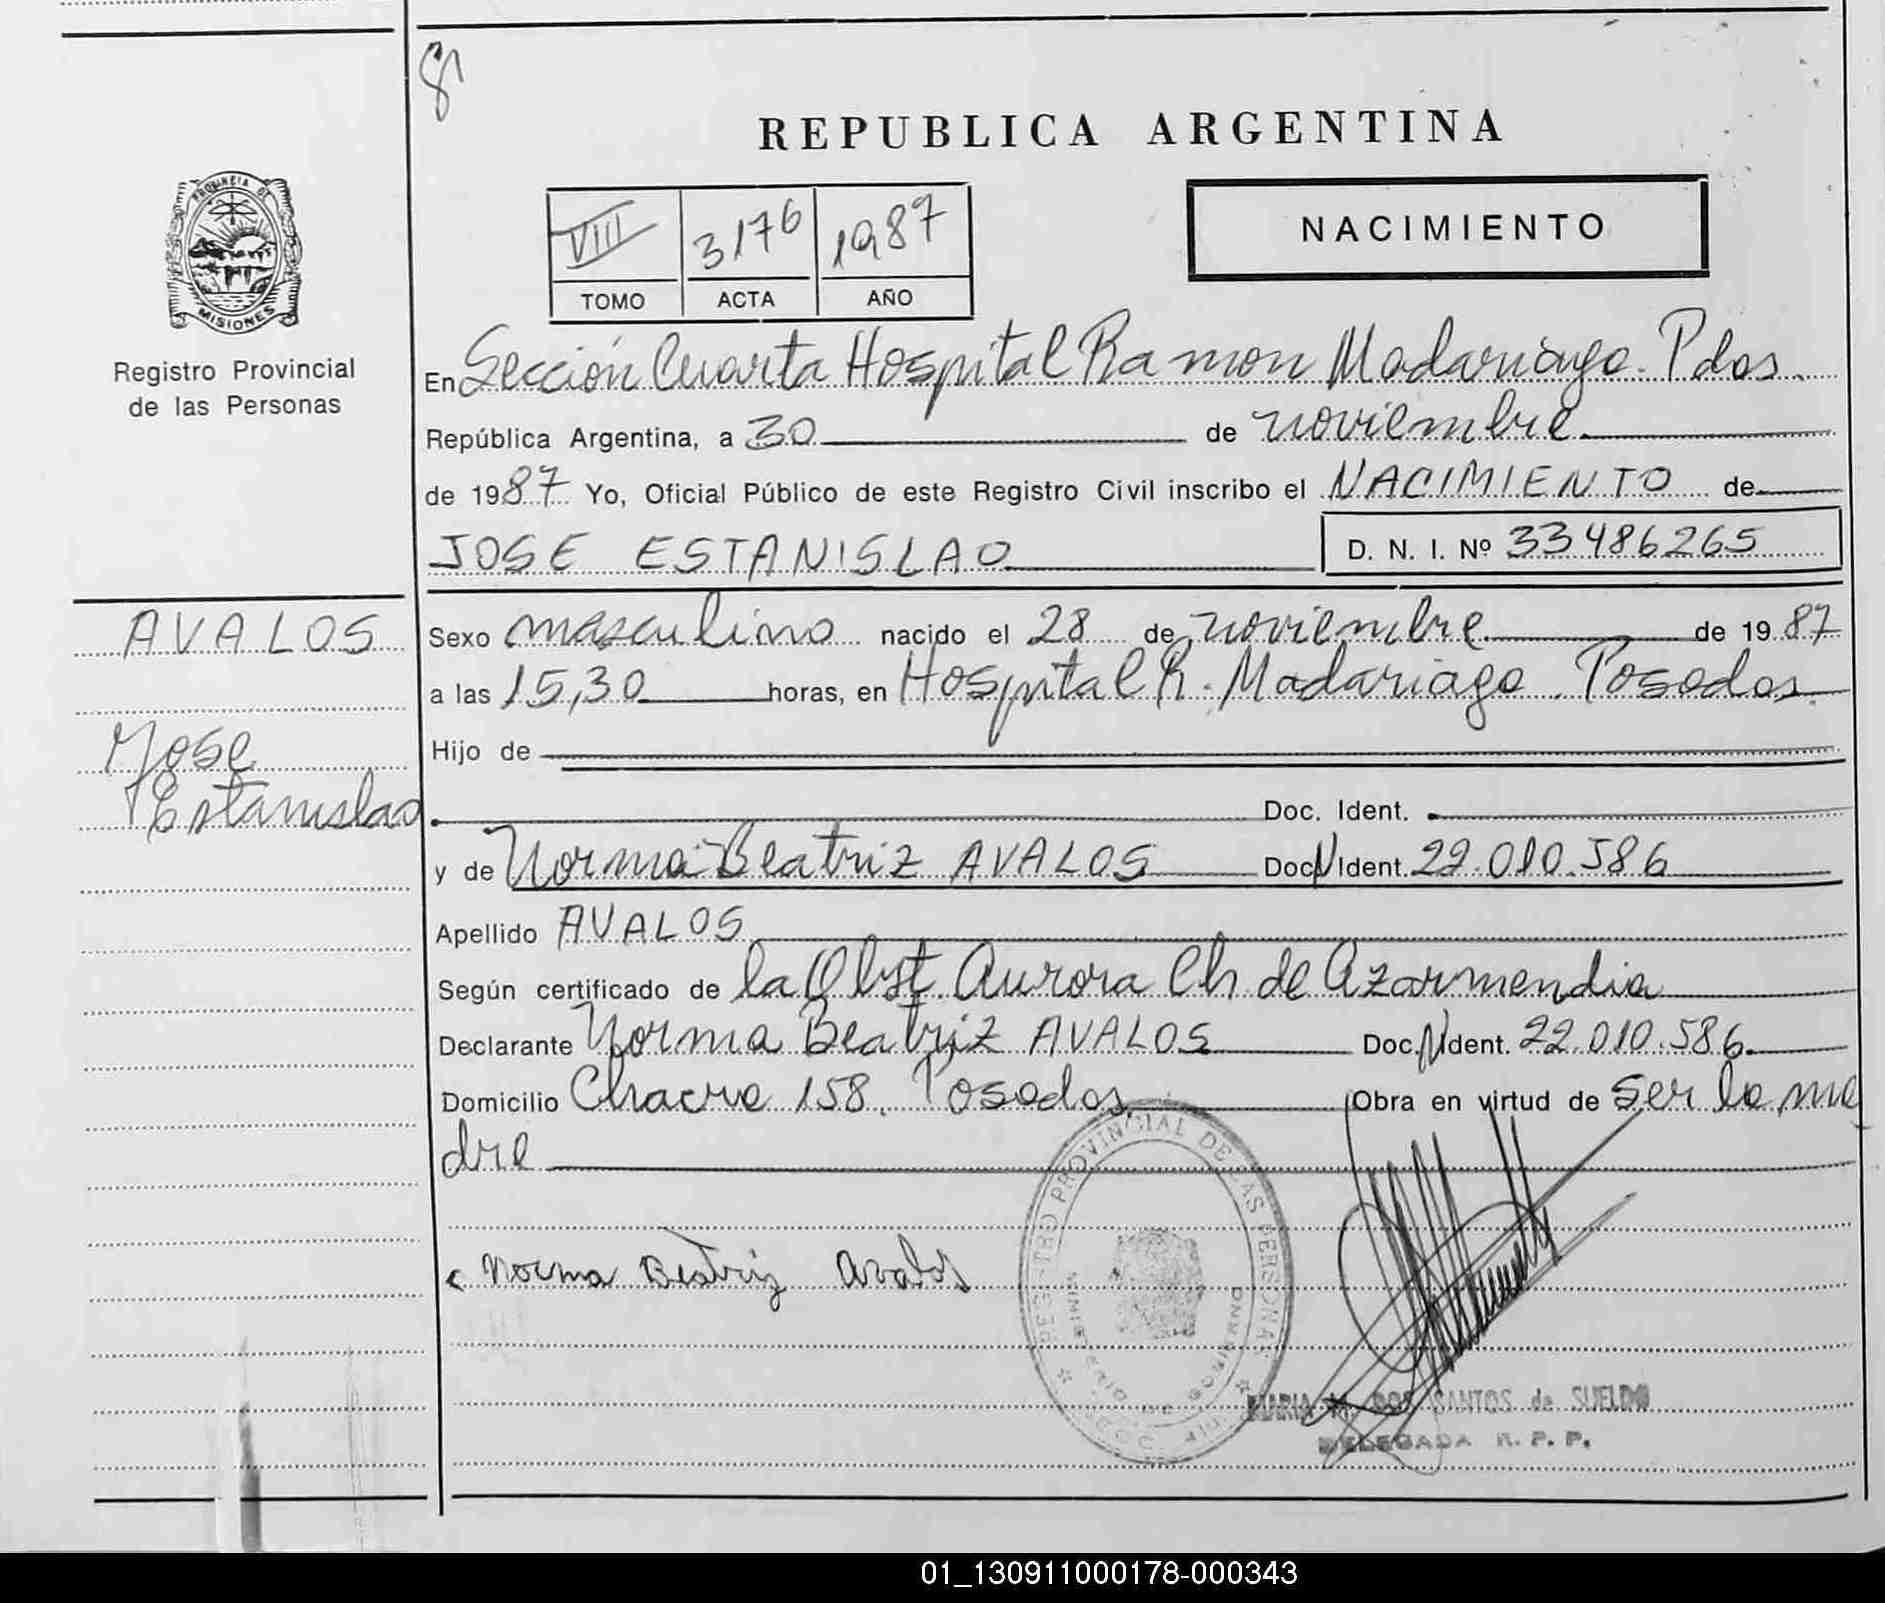 8
REPUBLICA ARGENTINA
PROVINCIA DE MISIONES
Registro Provincial
de las Personas
VIII 3176 1987
TOMO ACTA AÑO
NACIMIENTO
En Sección Cuarta Hospital Ramon Madariaga. Pdas.
República Argentina, a 30 de noviembre
de 1987 Yo, Oficial Público de este Registro Civil inscribo el NACIMIENTO de
JOSE ESTANISLAO D. N. I. Nº 33486265
AVALOS
Jose
Estanislao
Sexo masculino nacido el 28 de noviembre de 1987
a las 15,30 horas, en Hospital R. Madariaga. Posadas.
Hijo de
Doc. Ident.
y de Norma Beatriz AVALOS Doc N Ident. 22.010.586
Apellido AVALOS
Según certificado de la Obst. Aurora Ch de Azarmendia
Declarante Norma Beatriz AVALOS Doc. N Ident. 22.010.586
Domicilio Chacra 158, Posadas, Obra en virtud de ser la ma
dre
Norma Beatriz Avalos
REGISTRO PROVINCIAL DE LAS PERSONAS
MINISTERIO DE GOBIERNO
MARIA DOS SANTOS de SUELDO
DELEGADA R. P. P.
01_130911000178-000343